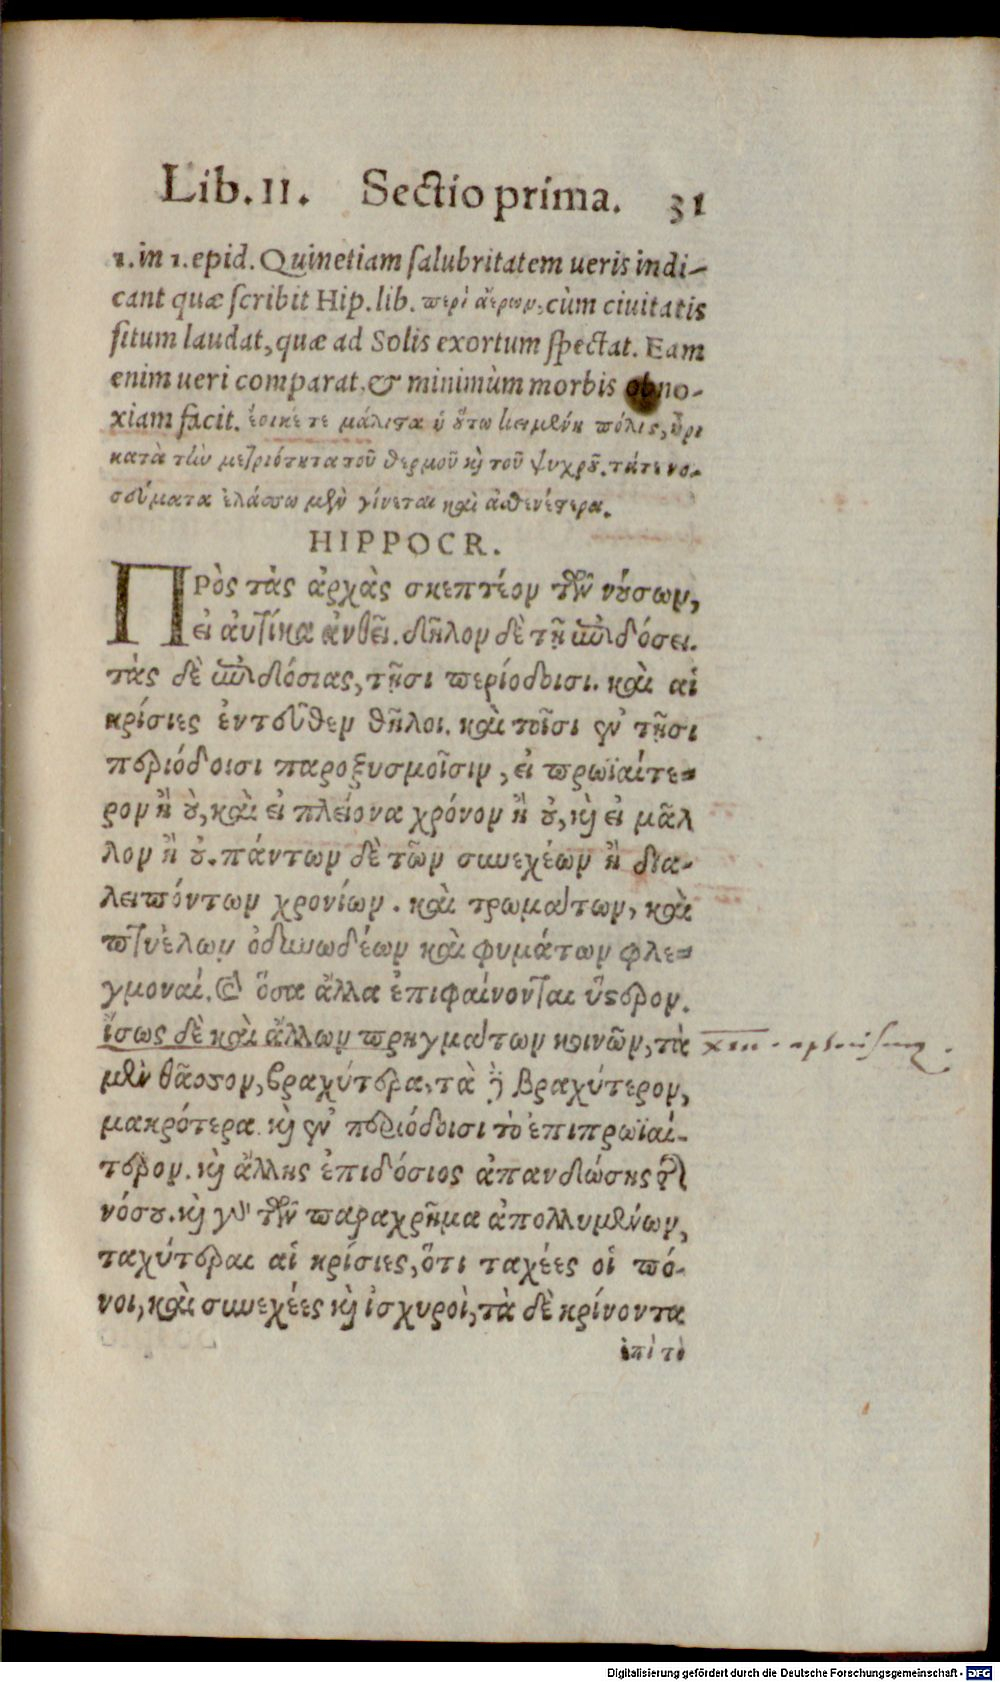 Lib. II. Sectio prima. 31
1. in 1. epid. Quinetiam ſalubritatem ueris indi-
cant quæ ſcribit Hip. lib. περὶ ἀέρων, cùm ciuitatis
ſitum laudat, quæ ad Solis exortum ſpectat. Eam
enim ueri comparat, & minimùm morbis obno-
xiam facit. ἔοικέ τε μάλιστα ἡ οὕτω κειμένη πόλις, ἦρι
κατὰ τὴν μετριότητα τοῦ θερμοῦ καὶ τοῦ ψυχροῦ. τά τε νο-
σεύματα ἐλάσσω μὲν γίνεται καὶ ἀσθενέστερα.
HIPPOCR.
ΠΡὸς τὰς ἀρχὰς σκεπτέον τῶν νούσων,
εἰ αὐτίκα ἀνθεῖ. δῆλον δὲ τῇ ἐπιδόσει.
τὰς δὲ ἐπιδόσιας, τῇσι περίοδοισι. καὶ αἱ
κρίσιες ἐντεῦθεν θῆλοι. καὶ τοῖσι ἐν τῇσι
περιόδοισι παροξυσμοῖσιν, εἰ πρωϊαίτε=
ρον ἢ οὐ, καὶ εἰ πλείονα χρόνον ἢ οὐ, καὶ εἰ μᾶλ
λον ἢ οὐ. πάντων δὲ τῶν συνεχέων ἢ δια-
λειπόντων χρονίων. καὶ τρωμάτων, καὶ
πτυέλων ὀδυνωδέων καὶ φυμάτων φλε=
γμοναί. καὶ ὅσα ἄλλα ἐπιφαίνονται ὕστερον.
ἴσως δὲ καὶ ἄλλων πρηγμάτων κοινῶν, τὰ
μὲν θᾶσσον, βραχύτερα, τὰ δὲ βραχύτερον,
μακρότερα. καὶ ἐν περιόδοισι τὸ ἐπιπρωϊαί-
τερον. καὶ ἄλλης ἐπιδόσιος ἀπανδιώσης τῆς
νόσου. καὶ γὰρ τῶν παραχρῆμα ἀπολλυμένων,
ταχύτεραι αἱ κρίσιες, ὅτι ταχέες οἱ πό-
νοι, καὶ συνεχέες καὶ ἰσχυροὶ, τὰ δὲ κρίνοντα
ἐπὶ τὸ
Digitalisierung gefördert durch die Deutsche Forschungsgemeinschaft - DFG